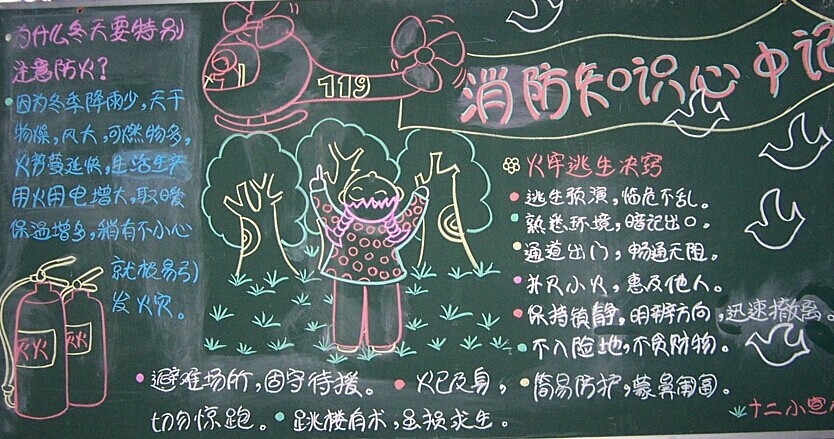 为什么冬天要特别
注意防火？
因为冬季降雨少，天干
物燥，风大，可燃物多，
火势蔓延快，生活生产
用火用电增大，取暖
保温增多，稍有不小心
就极易引
发火灾。
灭火
灭火
119
消防知识心中记
火牢逃生决窍
逃生预演，临危不乱。
熟悉环境，暗记出口。
通道出门，畅通无阻。
扑灭小火，惠及他人。
保持镇静，明辨方向，迅速撤离。
不入险地，不贪财物。
避难场所，固守待援。 火已及身， 简易防护，蒙鼻匍匐。
切勿惊跑。 跳楼有术，虽损求生。
十二小宣